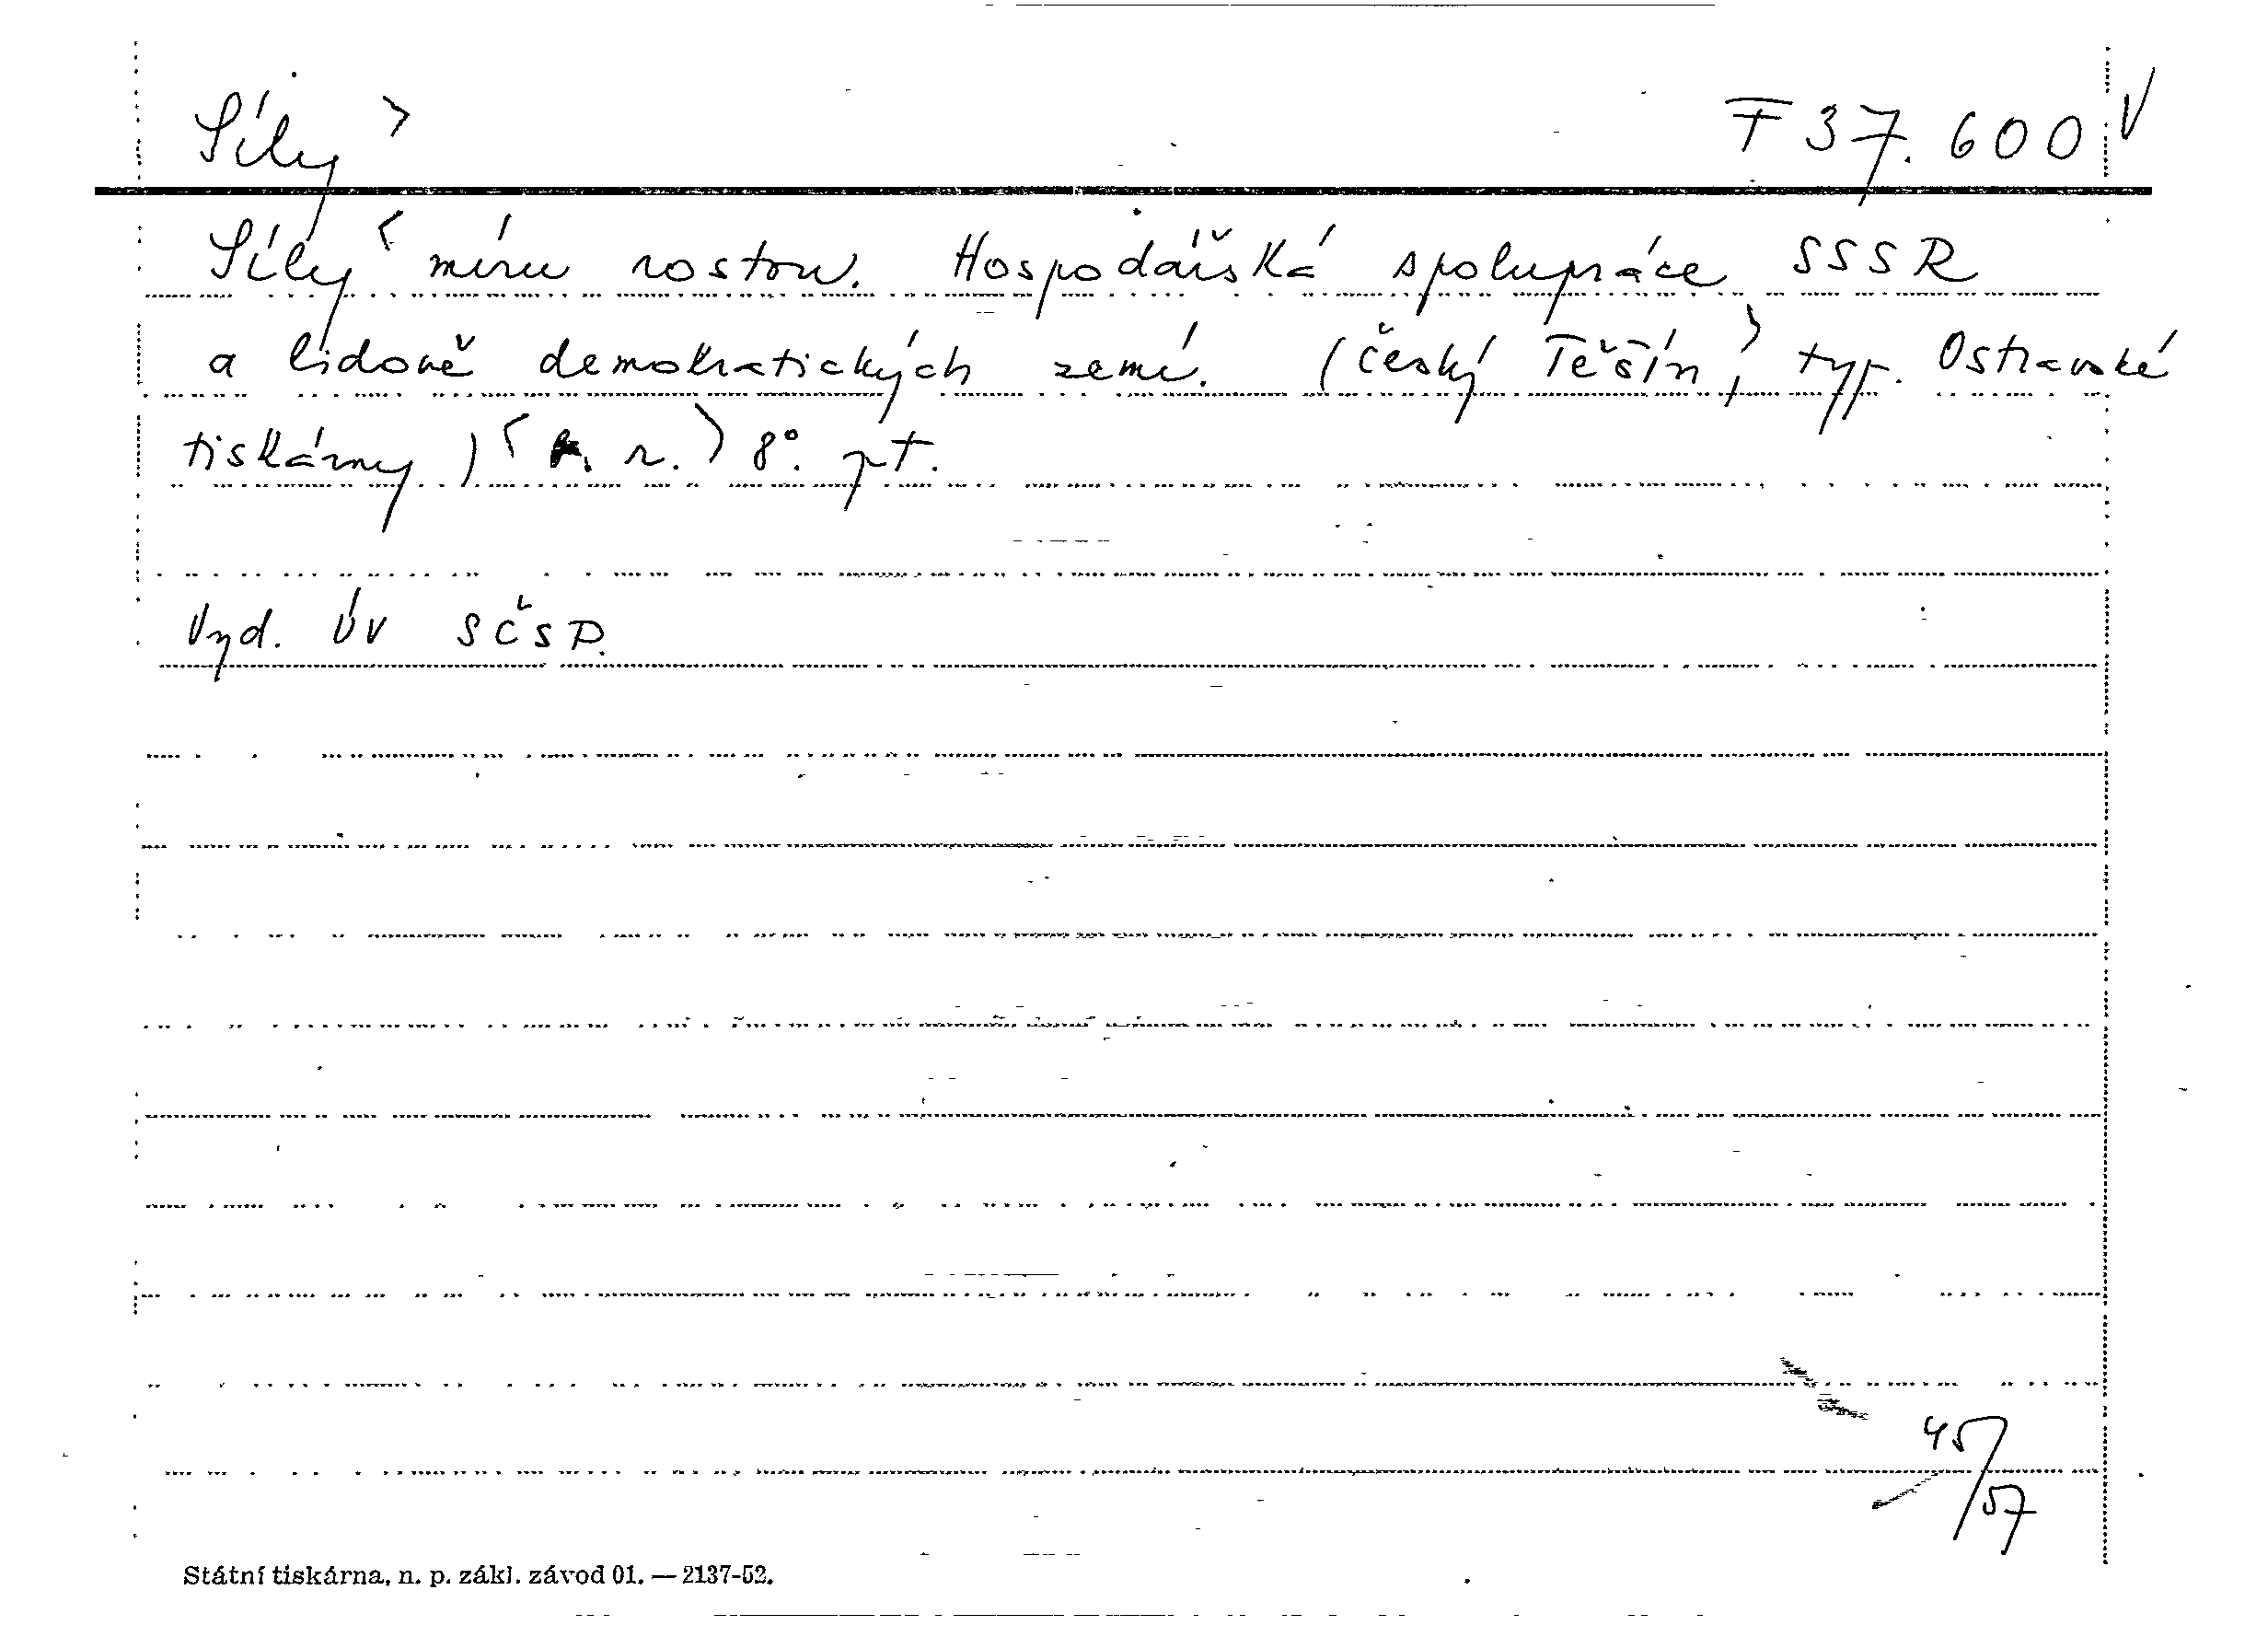 Síly > F 37.600 V
Síly < míru rostou. Hospodářská spolupráce SSSR
a lidově demokratických zemí. (Český Těšín,> typ. Ostravské
tiskárny) < r.> 8°. pt.
Vyd. ÚV SČSP.
45/57
Státní tiskárna, n. p. zákl. závod 01. — 2137-52.